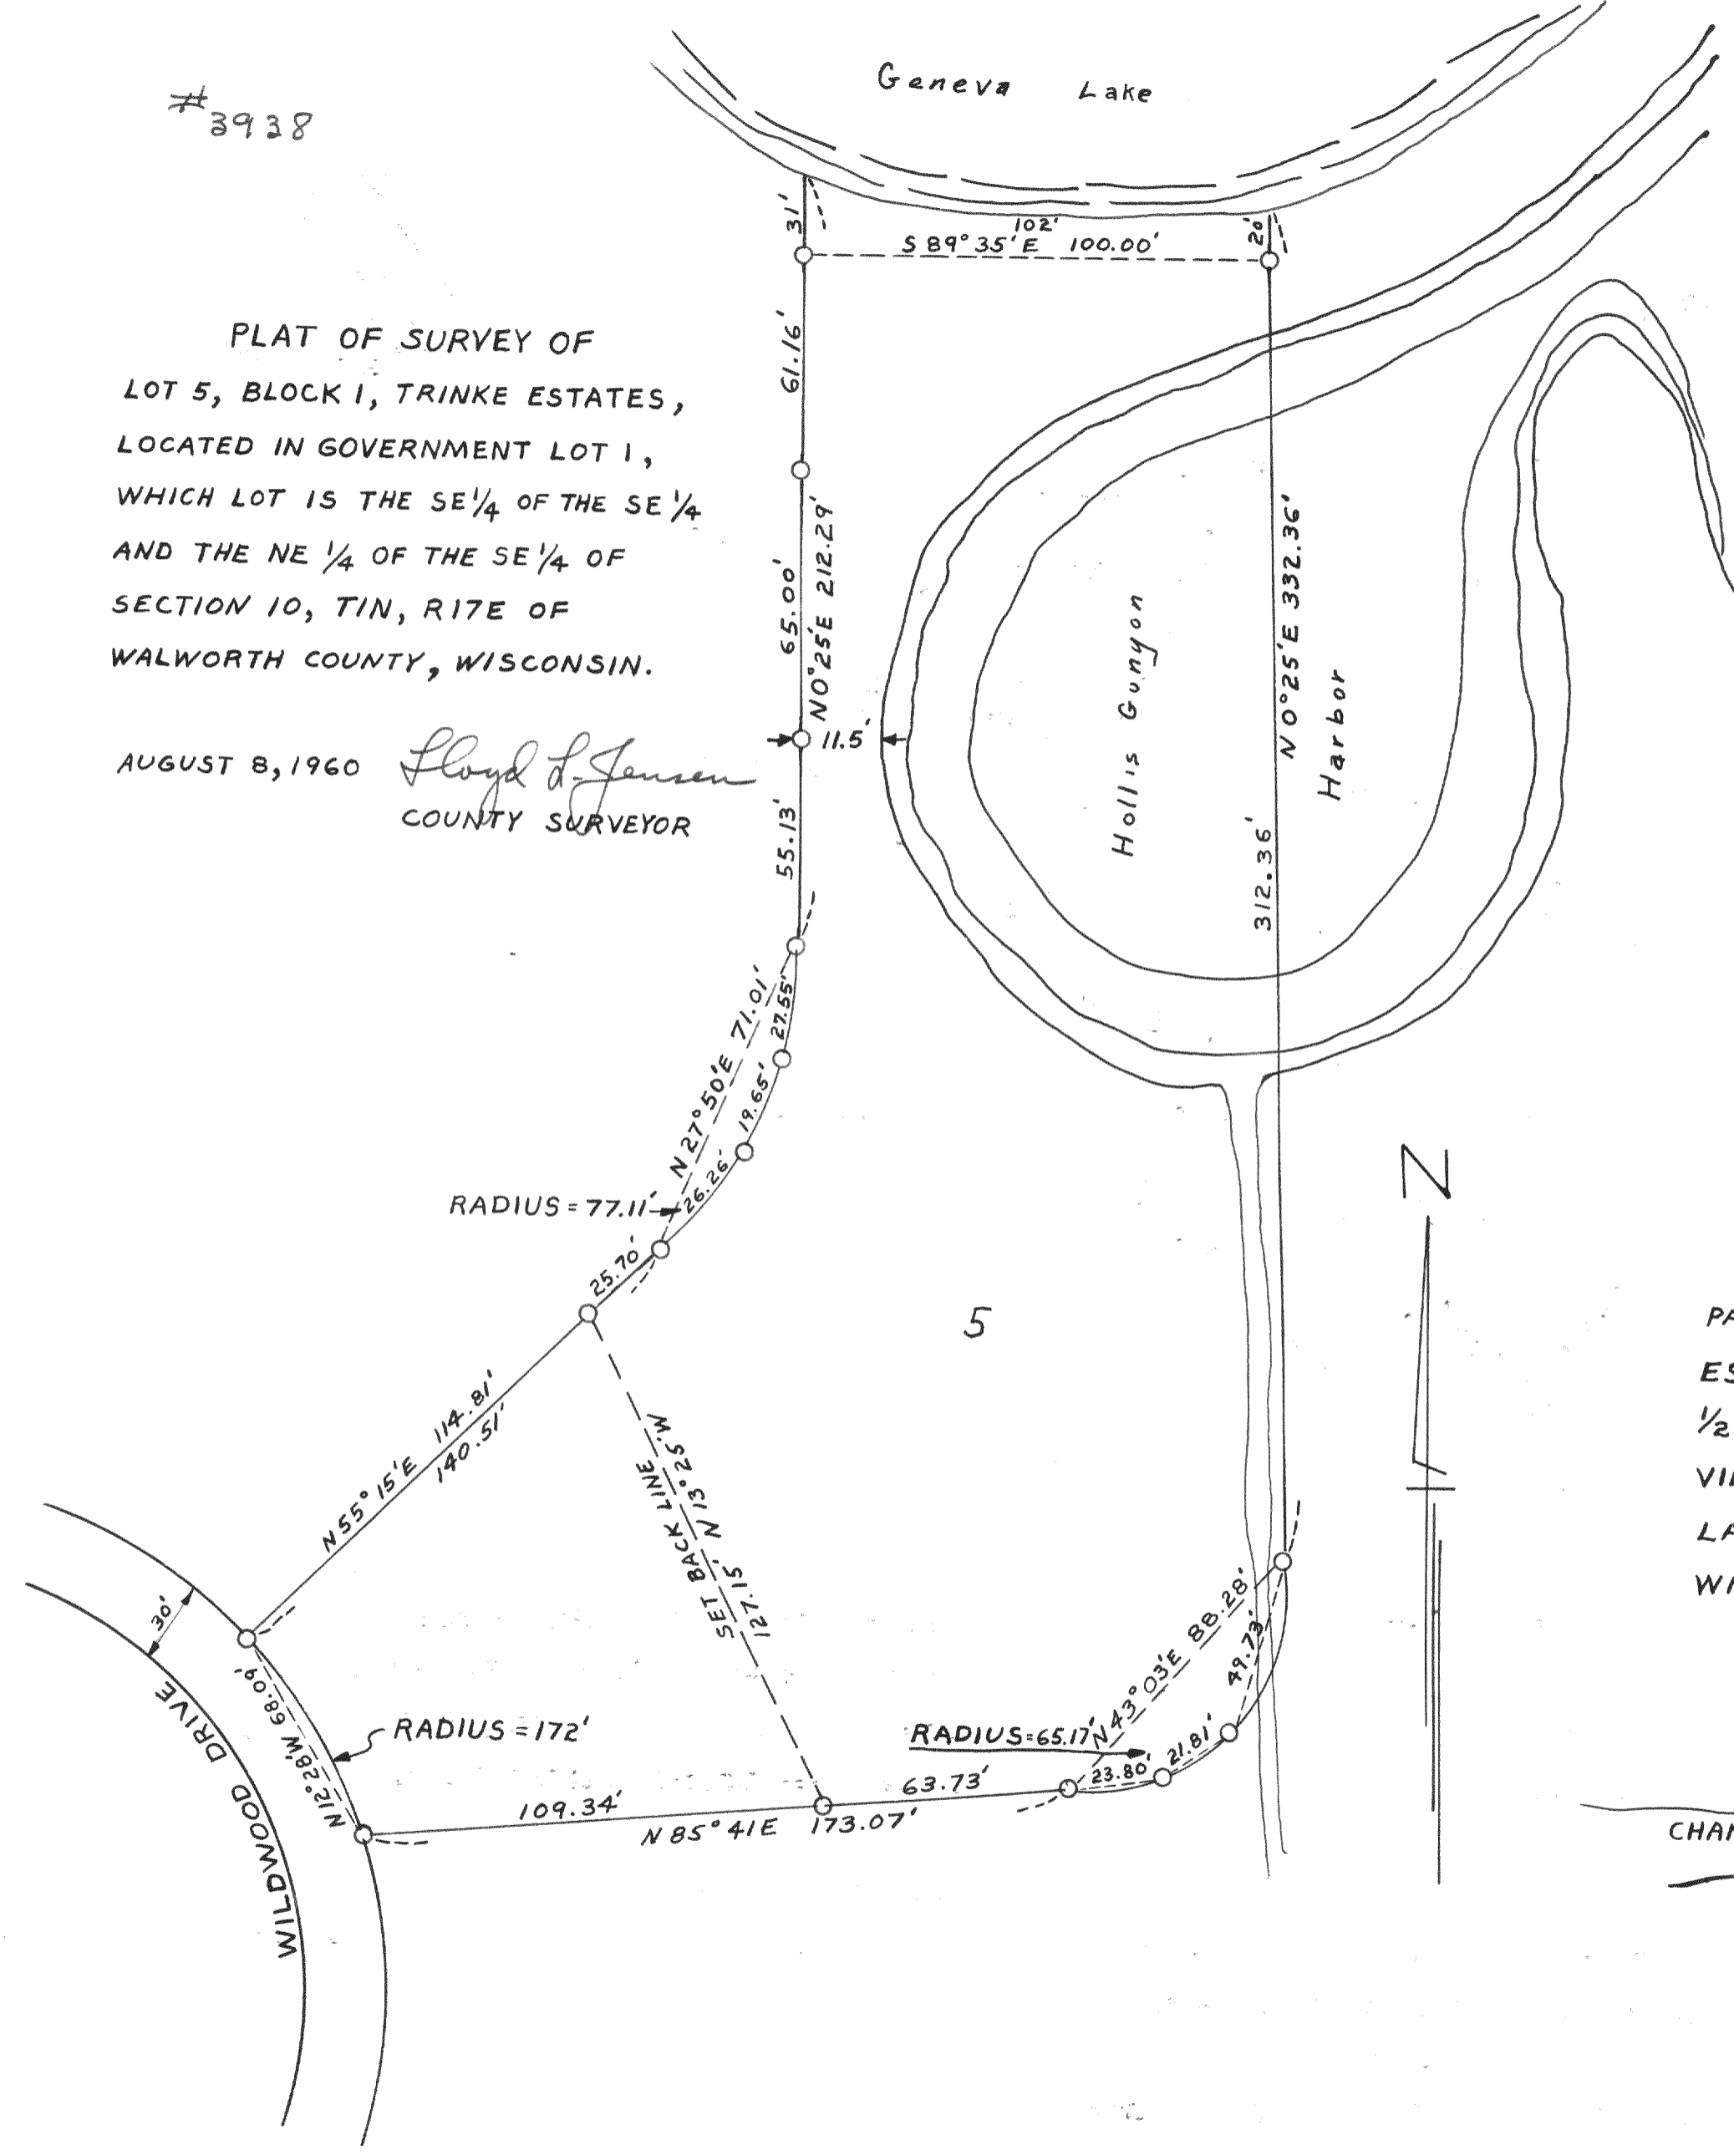 #3938
Geneva Lake
31'
102'
S 89° 35' E 100.00'
20'
PLAT OF SURVEY OF
LOT 5, BLOCK 1, TRINKE ESTATES,
LOCATED IN GOVERNMENT LOT 1,
WHICH LOT IS THE SE 1/4 OF THE SE 1/4
AND THE NE 1/4 OF THE SE 1/4 OF
SECTION 10, T1N, R17E OF
WALWORTH COUNTY, WISCONSIN.
AUGUST 8, 1960 Lloyd L. Jensen
COUNTY SURVEYOR
61.16'
65.00'
N 0° 25' E 212.29'
11.5'
55.13'
Hollis Gunyon
Harbor
N 0° 25' E 332.36'
312.36'
N 27° 50' E 71.01'
27.55'
19.65'
26.26'
RADIUS = 77.11'
25.70'
5
N
N 55° 15' E 114.81'
140.51'
SET BACK LINE
127.15' N 13° 25' W
30'
WILDWOOD DRIVE
N 12° 28' W 68.09'
RADIUS = 172'
109.34'
N 85° 41 E 173.07'
63.73'
RADIUS = 65.17'
N 43° 03' E 88.28'
23.80'
21.81'
49.73'
PA
ES
1/2
VIL
LA
WA
CHAN